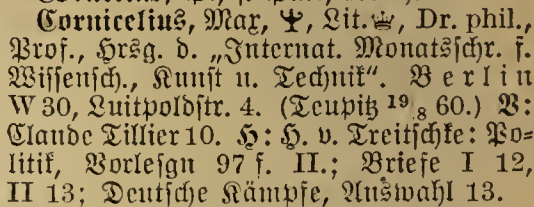 Cornicelius, Max, Lit., Dr. phil.,
Prof., Hrsg. d. „Internat. Monatsschr. f.
Wissensch., Kunst u. Technik“. Berlin
W 30, Luitpoldstr. 4. (Teupitz 19/8 60.) V:
Claude Tillier 10. H: H. v. Treitschke: Po-
litik, Vorlesgn 97 f. II.; Briefe I 12,
II 13; Deutsche Kämpfe, Auswahl 13.